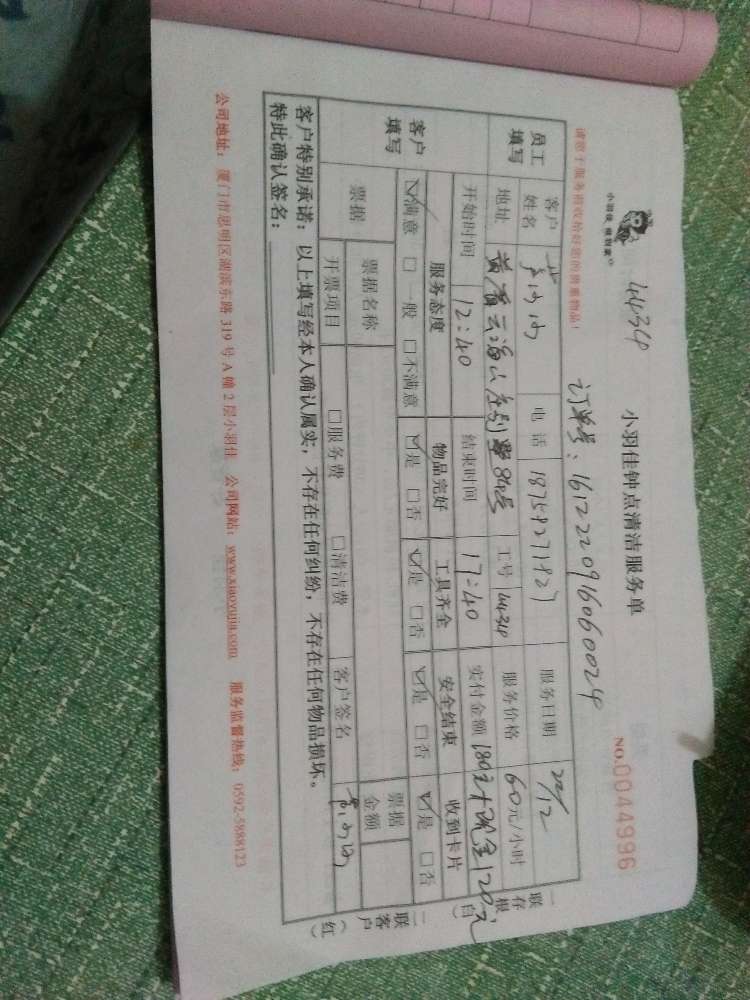 小羽佳 很到家
4434
小羽佳钟点清洁服务单
NO.0044996
订单号：1612220916060024
请您于服务前收拾好您的贵重物品！
员工填写 客户姓名 电话 18759271927 服务日期 22/12
地址 工号 4434 服务价格 60元/小时
客户填写 开始时间 12:40 结束时间 17:40 实付金额 180 120元
服务态度 物品完好 工具齐全 安全结束 收到卡片
☑满意 □一般 □不满意 ☑是 □否 ☑是 □否 ☑是 □否 ☑是 □否
票据 票据名称 票据金额
开票项目 □服务费 □清洁费 客户签名
客户特别承诺：以上填写经本人确认属实，不存在任何纠纷，不存在任何物品损坏。
特此确认签名：
一联存根（白）
二联客户（红）
公司地址：厦门市思明区湖滨东路 319 号 A 幢 2 层小羽佳 公司网站：www.xiaoyujia.com 服务监督热线：0592-5888123